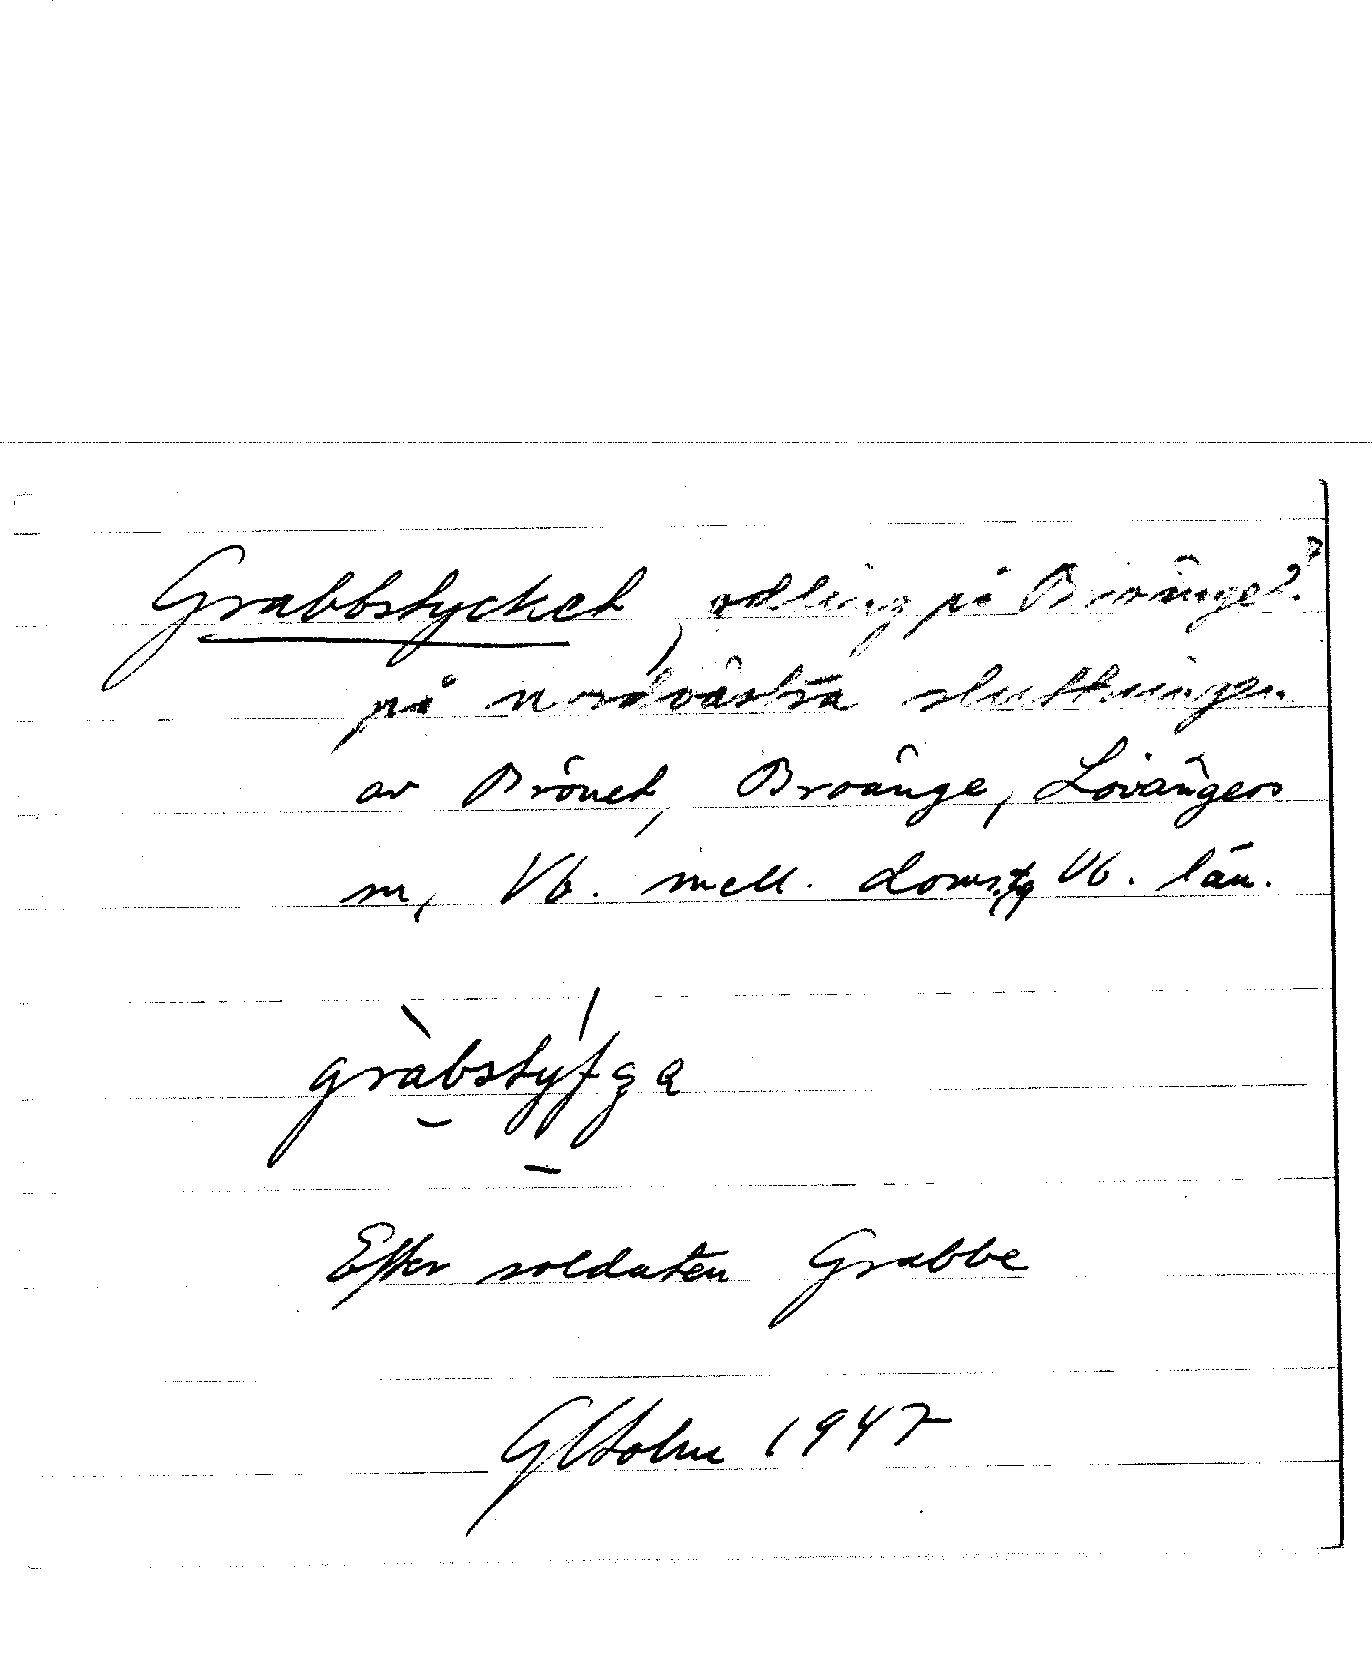 Grabbstycket, odling på Broänge?
på nordvästra sluttningen
av Brönet, Broånge, Lövångers
sn, Vb. mell. doms. Vb. län.
gràbstýfga
Efter soldaten Grabbe
Holm 1947